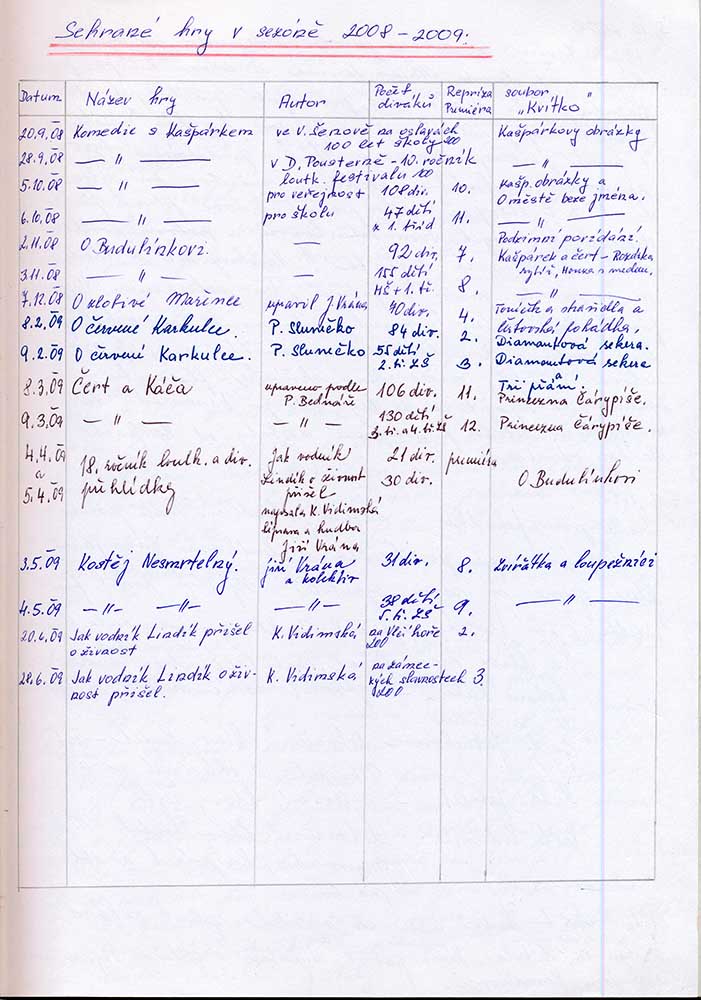 Sehrané hry v sezóně 2008 - 2009.
Datum Název hry Autor Počet diváků Repríza Premiéra soubor „Kvítko"
20.9.08 Komedie s Kašpárkem ve V. Šenově na oslavách 100 let školy 200 Kašpárkovy obrázky
28.9.08 — " — v D. Poustevně - 10. ročník loutk. festivalu 100 — " —
5.10.08 — " — pro veřejnost 108 div. 10. Kašp. obrázky a O městě beze jména.
6.10.08 — " — pro školu 47 dětí z 1. tříd 11. — " —
2.11.08 O Budulínkovi. — 92 div. 7. Podzimní povídání. Kašpárek a čert - Rozárka
3.11.08 — " — — 155 dětí MŠ + 1. tř. 8. — " —
7.12.08 O zlobivé Mařince upravil J. Vrána 70 div. 4. Toničík a strašidla a pohádka.
8.2.09 O červené Karkulce. P. Sluníčko 84 div. 2. Diamantová sekera.
9.2.09 O červené Karkulce. P. Sluníčko 55 dětí 2. tř. ZŠ 3. Diamantová sekera
8.3.09 Čert a Káča upraveno podle P. Bednáře 106 div. 11. Tři přání. a Princezna Čárypíše.
9.3.09 — " — — " — 130 dětí 3. tř. a 4. tř. ZŠ 12. Princezna Čárypíše.
4.4.09 18. ročník loutk. a div. Jak vodník 21 div. premiéra
a
5.4.09 přehlídky Lindík o živnost přišel 30 div. O Budulínkovi
napsala K. Vidimská
úprava a hudba
Jiří Vrána
3.5.09 Kostěj Nesmrtelný. Jiří Vrána a kolektiv 31 div. 8. Zvířátka a loupežníci
4.5.09 — " — — " — — " — 38 dětí 5. tř. ZŠ 9. — " —
20.6.09 Jak vodník Lindík přišel o živnost K. Vidimská na Vlčí hoře 200 2.
28.6.09 Jak vodník Lindík o živnost přišel. K. Vidimská na zámeckých slavnostech 200 3.